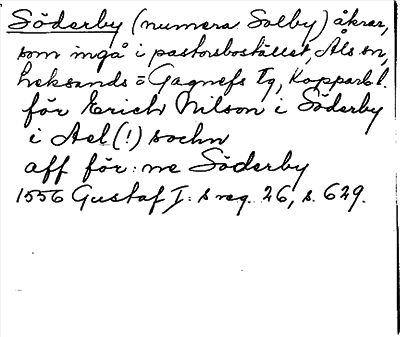 Söderby (numera Solby) åkrar,
som ingå i pastorsbostället, Åls sn,
Leksands o Gagnefs tg, Kopparb l.
för Erich Nilson i Söderby
i Ael (!) sochn
aff för:ne Söderby
1556 Gustaf I:s reg. 26, s. 629.